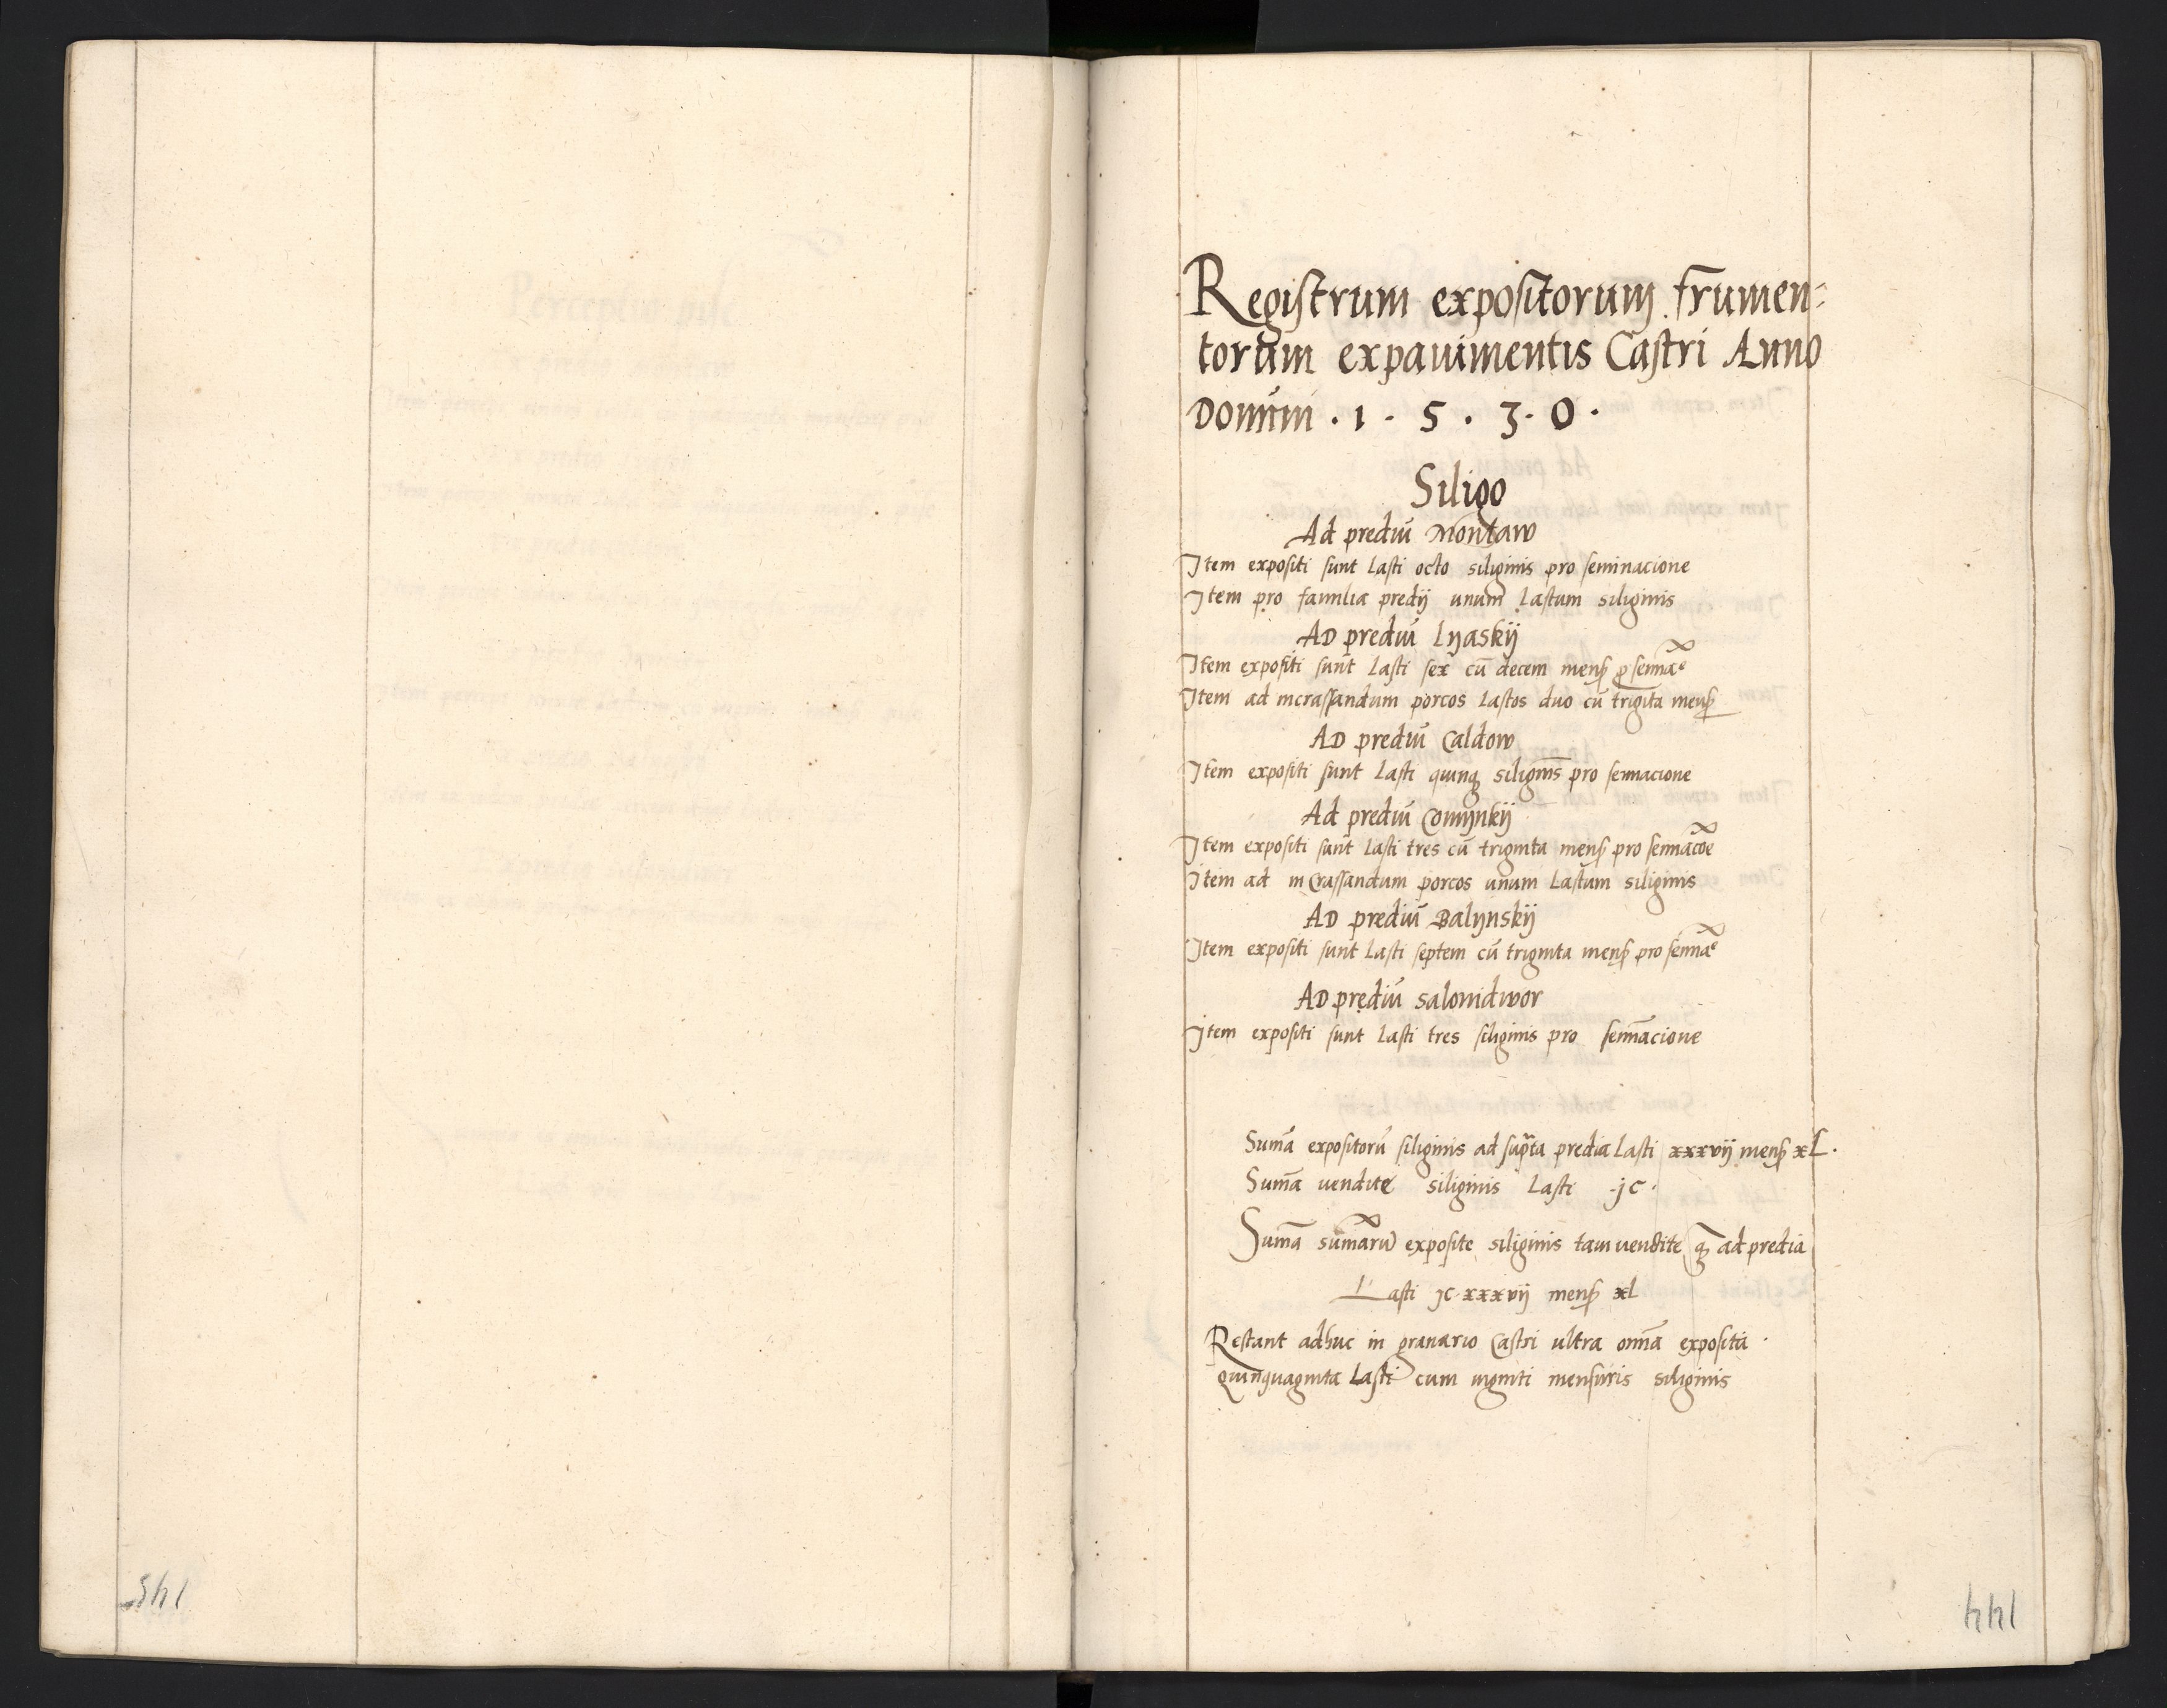 Registrum expositorum frumen=
torum expauimentis Castri Anno
Domini . 1 . 5 . 3 . 0 .
Siligo
Ad prediū Montaw
Item expositi sunt Lasti octo siliginis pro seminacione
Item pro familia predij unum Lastum siliginis
AD prediū Lyaskij
Item expositi sunt Lasti sex cū decem mens ꝓ semīae
Item ad incrassandum porcos Lastos duo cū trigīta mens
AD prediū Caldow
Item expositi sunt Lasti quinqꝫ siligīns pro seminacione
Ad prediū Comynkij
Item expositi sunt Lasti tres cū triginta mens pro seminacōe
Item ad inCrassandum porcos unum Lastum siliginis
AD prediū Balynskij
Item expositi sunt Lasti septem cū triginta mens pro semīae
AD prediū salonidwor
Item expositi sunt Lasti tres siliginis pro semīacione
Sumā expositorū siliginis ad supͣta predia Lasti xxxvij mens xL .
Sumā uendite siliginis Lasti .jc.
Sumā sumārū exposite siliginis tam uendite qꝫ ad predia
Lasti jc xxxvij mens xl
Restant adhuc in granario Castri ultra omīa exposita .
quinquaginta Lasti cum uiginti mensuris siliginis
145
144